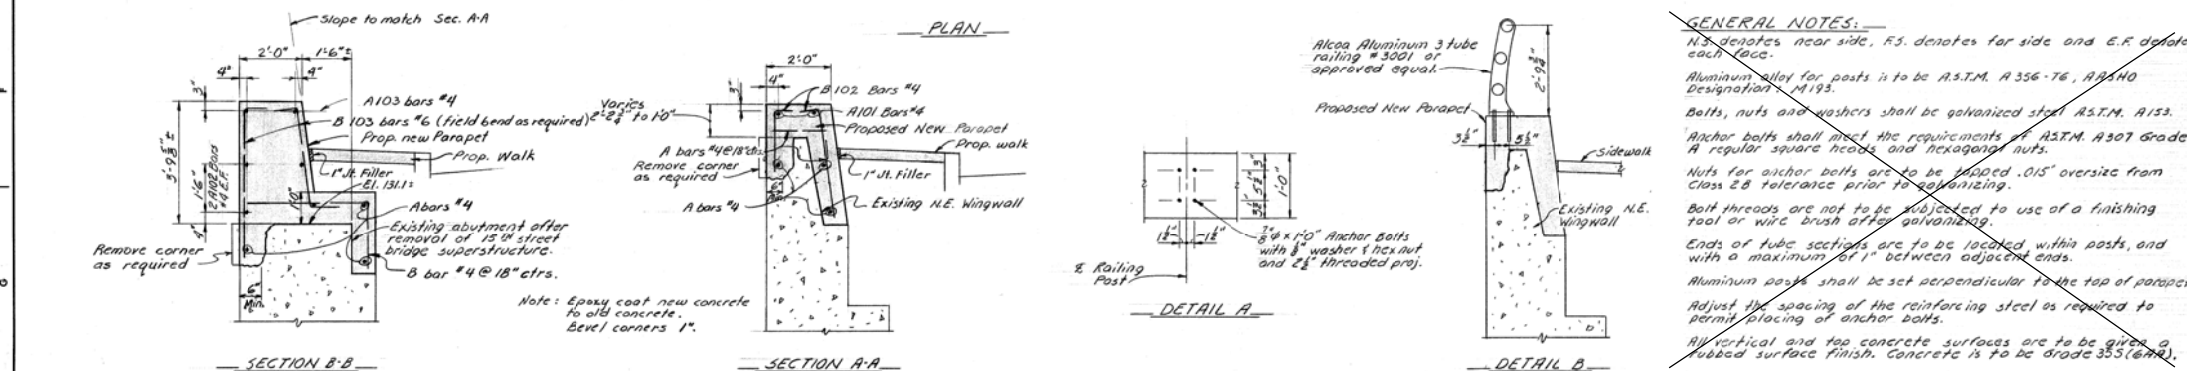 Slope to match Sec. A-A
2'-0"
1'-6"±
4"
4"
3"
A103 bars #4
B 103 bars #6 (field bend as required)
Prop. new Parapet
Prop. Walk
1" Jt. Filler
El. 131.1±
2 A102 Bars
#4 E.F.
1'-6"
4"
A bars #4
Existing abutment after
removal of 15th street
bridge superstructure.
B bar #4 @ 18" ctrs.
Remove corner
as required
6"
Min.
SECTION B-B
Note: Epoxy coat new concrete
to old concrete.
Bevel corners 1".
PLAN
2'-0"
4"
3"
Varies
B 102 Bars #4
A101 Bars #4
Proposed New Parapet
Prop. walk
A bars #4 @ 18" ctrs.
Remove corner
as required
1" Jt. Filler
6"
Min.
A bars #4
Existing N.E. Wingwall
SECTION A-A
1'-0"
1½"
1½"
Anchor Bolts
washer & hex nut
threaded proj.
℄ Railing
Post
DETAIL A
Alcoa Aluminum 3 tube
railing #3001 or
approved equal.
Proposed New Parapet
Sidewalk
Existing N.E.
Wingwall
DETAIL B
GENERAL NOTES:
N.S. denotes near side, F.S. denotes far side and E.F. denote
each face.
Aluminum alloy for posts is to be A.S.T.M. A 356-T6, AASHO
Designation: M193.
Bolts, nuts and washers shall be galvanized steel A.S.T.M. A153.
Anchor bolts shall meet the requirements of A.S.T.M. A307 Grade
A regular square heads and hexagonal nuts.
Nuts for anchor bolts are to be tapped .015" oversize from
Class 2B tolerance prior to galvanizing.
Bolt threads are not to be subjected to use of a finishing
tool or wire brush after galvanizing.
Ends of tube sections are to be located within posts, and
with a maximum of 1" between adjacent ends.
Aluminum posts shall be set perpendicular to the top of parapet
Adjust the spacing of the reinforcing steel as required to
permit placing of anchor bolts.
All vertical and top concrete surfaces are to be given a
rubbed surface finish. Concrete is to be Grade 35S
F
G